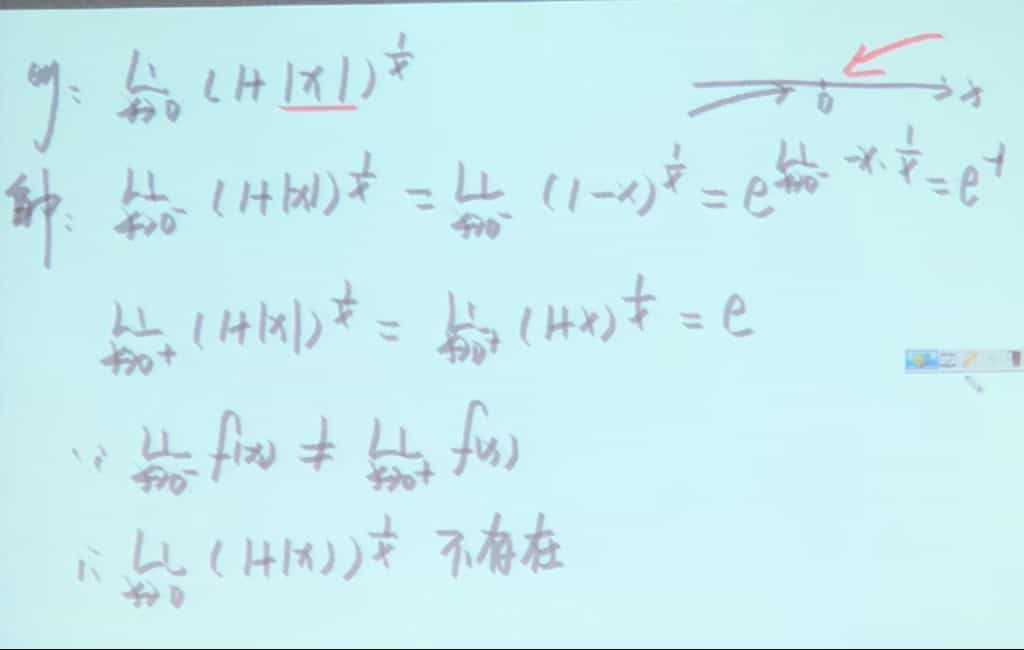 例: lim x→0 (1+|x|)^(1/x)
0 x
解: lim x→0⁻ (1+|x|)^(1/x) = lim x→0⁻ (1-x)^(1/x) = e^(lim x→0⁻ -x·1/x) = e^(-1)
lim x→0⁺ (1+|x|)^(1/x) = lim x→0⁺ (1+x)^(1/x) = e
∵ lim x→0⁻ f(x) ≠ lim x→0⁺ f(x)
∴ lim x→0 (1+|x|)^(1/x) 不存在